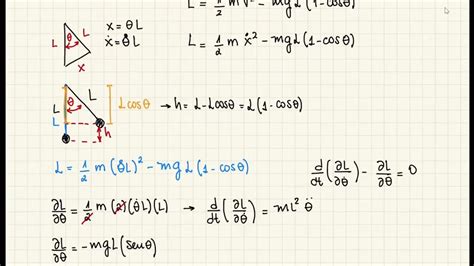 L = 1/2 m v² - mgL(1-cosθ)
L θ L x = θL
x ẋ = θ̇L L = 1/2 m ẋ² - mgL(1-cosθ)
L θ L Lcosθ → h = L-Lcosθ = L(1-cosθ)
L
h
L = 1/2 m (θ̇L)² - mgL(1-cosθ) d/dt(∂L/∂θ̇) - ∂L/∂θ = 0
∂L/∂θ̇ = 1/2 m (2)(θ̇L)(L) → d/dt(∂L/∂θ̇) = mL² θ̈
∂L/∂θ = -mgL(senθ)